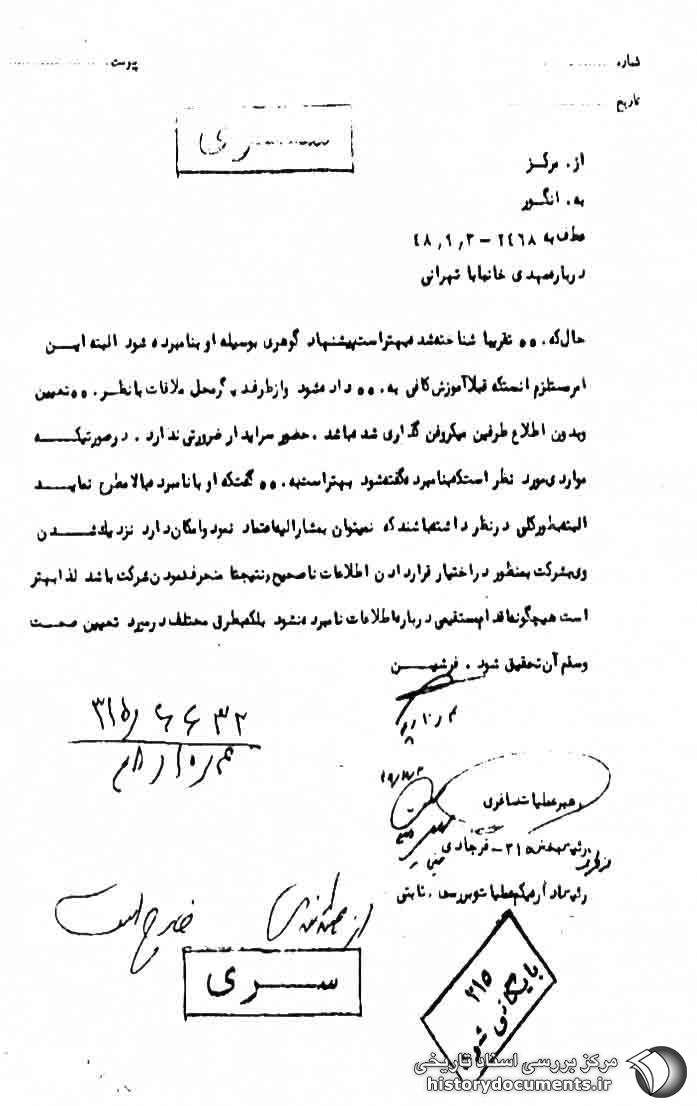 شماره
پیوست
تاریخ
ســـری
از. مرکز
به. انگور
عطف به ۲۴۶۸ – ۴۸٫۹٫۳
درباره مهدی خانبابا تهرانی
حال که. ۰۰ تقریبا شناخته شده بهتر است پیشنهاد گوهری بوسیله او بنامبرده شود البته ایـــن
امر مستلزم انستکه قبلا آموزش کافی به. ۰۰ داده شود و از طرف دیگر محل ملاقات با نظر. ۰۰ تعیین
و بدون اطلاع طرفین میکروفن گذاری شده باشد. حضور سرایدار ضرورتی ندارد. در صورتیکـــه
مواردی مورد نظر است که بنامبرده گفته شود بهتر است به. ۰۰ گفت که او با نامبرده بالا مطرح نمایـــد
البته بطور کلی در نظر داشته باشند که نمیتوان بمشارالیه اعتماد نمود و امکان دارد نزدیک شـــدن
وی بشرکت بمنظور در اختیار قرار دادن اطلاعات ناصحیح و نتیجتا منحرف نمودن شرکت باشد لذا بهتر
است هیچگونه اقدام مستقیمی درباره اطلاعات نامبرده نشود بلکه بطرق مختلف در مورد تعیین صحـــت
و سقم آن تحقیق شود. فرشیـــن
۳۱۵ ۶۶۳۲
رهبر عملیات سافری
رئیس بخش ۳۱۵ – فرجادی
رئیس اداره یکم عملیات و بررسی. ثابتی
ســـری
۳۱۵
بایگانی شود
مرکز بررسی اسناد تاریخی
historydocuments.ir